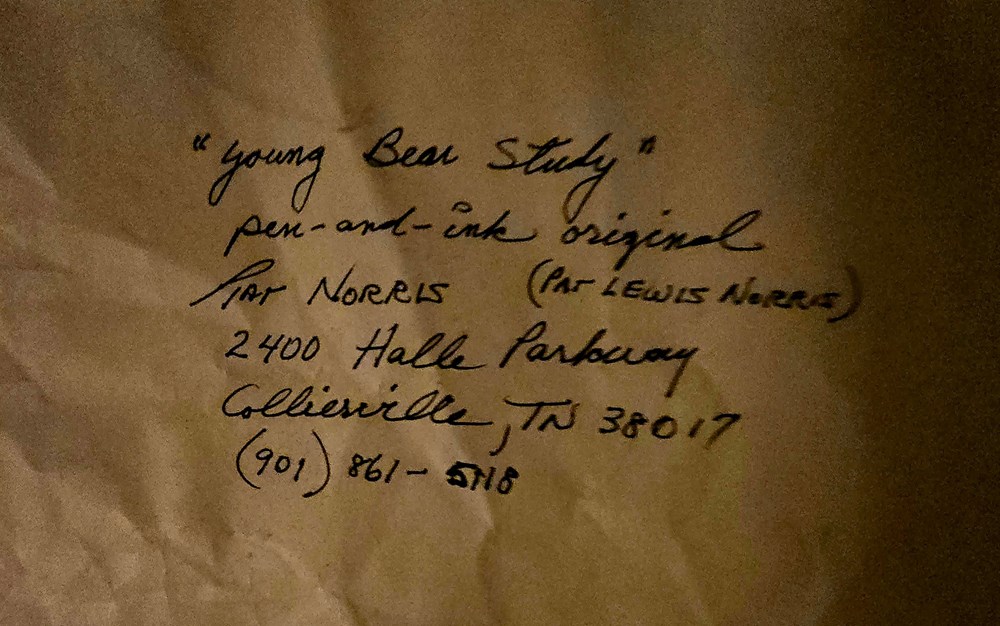 "Young Bear Study"
pen-and-ink original
Pat NORRIS (PAT LEWIS NORRIS)
2400 Halle Parkway
Collierville, TN 38017
(901) 861-5118